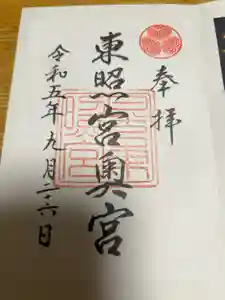 奉拝
東照宮奥宮
令和五年九月二十六日